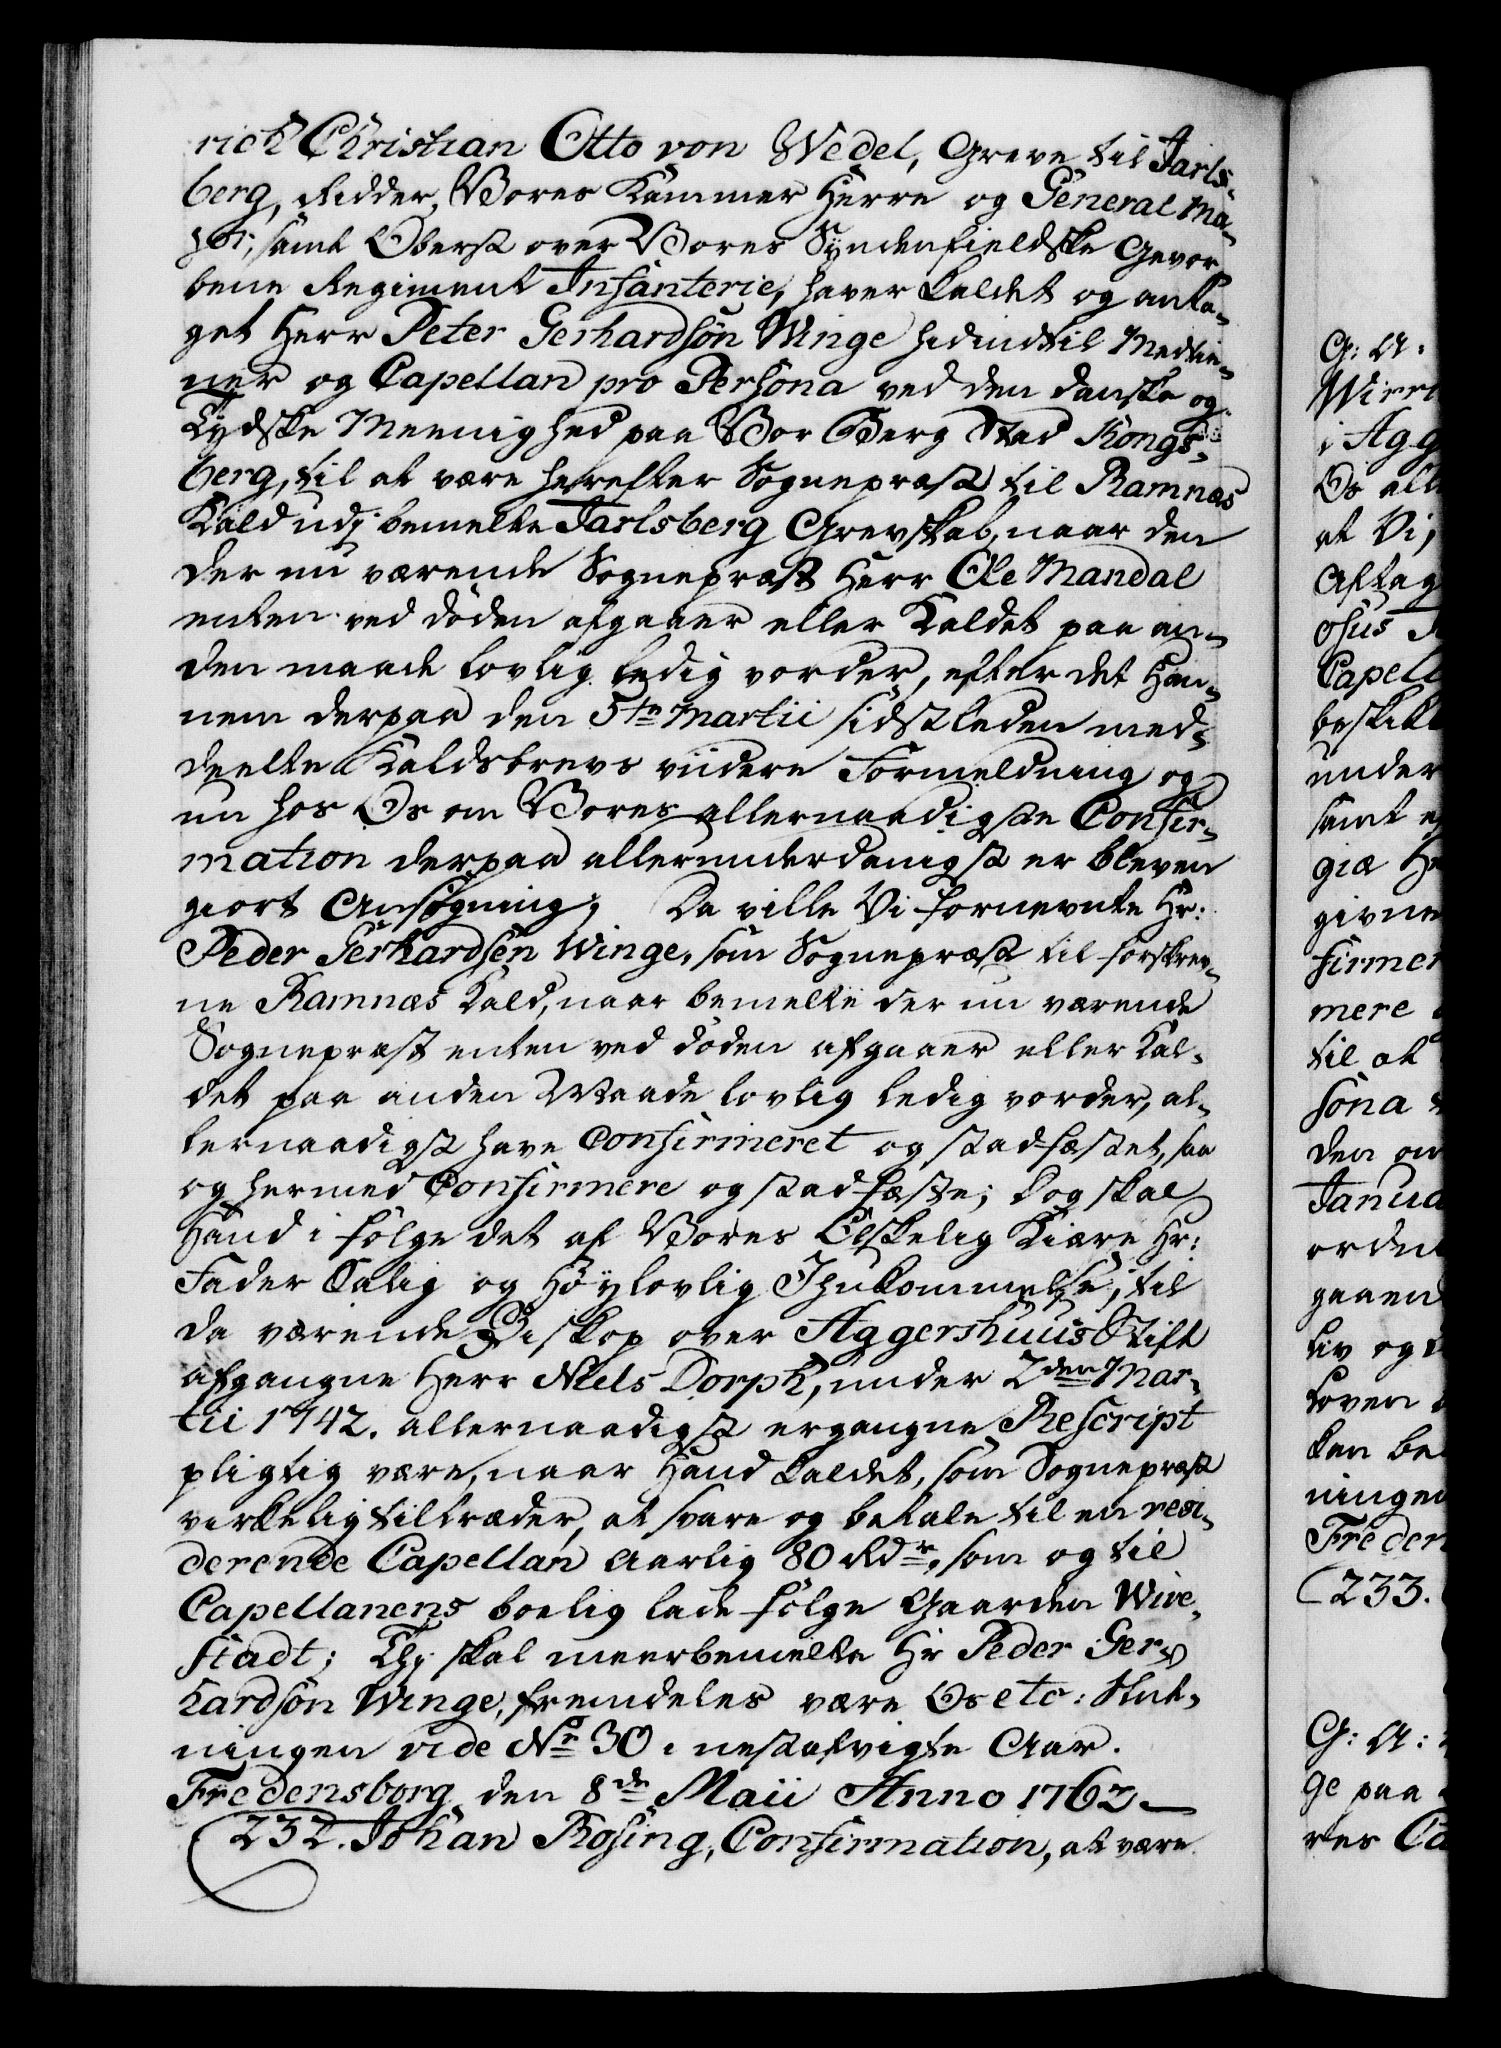 rich Christian Otto von Wedel, Greve til Jarls-
berg, Ridder, Vores Kammer Herre og General Ma-
jor, samt Oberst over Vores Syndenfieldske Gevor-
bene Regiment Infanterie, haver kaldet og anta-
get Herr Peter Gerhardsön Winge hidindtil Medtie-
ner og Capellan pro Persona ved den danske og
Tydske Meenighed paa Vor Berg Stad Kongs-
berg, til at være herefter Sognepræst til Ramnæs
Kald udj bemelte Jarlsberg Grevskab, naar den
der nu værende Sognepræst Herr Ole Mandal
enten ved döden afgaaer eller Kaldet paa an-
den maade lovlig ledig vorder, efter det Han-
nem derpaa den 5te Martii sidstleden med-
deelte Kaldsbrevs viidere Formeldning og
nu hos Os om Vores allernaadigste Confir-
mation derpaa allerunderdanigst er bleven
giort Ansøgning; Da ville Vi fornevnte Hr:
Peder Gerhardsen Winge, som Sognepræst til forskrev-
ne Ramnæs Kald, naar bemelte der nu værende
Sognepræst enten ved döden afgaaer eller Kal-
det paa anden Maade lovlig ledig vorder, al-
lernaadigst have Confirmeret og stadfæstet, saa
og hermed Confirmere og stadfæste; dog skal
Hand i fölge det af Vores Elskelig Kiære Hr:
Fader Salig og Høylovlig Ihukommelse, til
da værende Biskop over Aggershuus Stift
afgangne Herr Niels Dorph, under 2den Mar-
tii 1742. allernaadigst ergangne Rescript
pligtig være, naar Hand Kaldet, som Sognepræst
virkelig tiltræder, at svare og betale til en resi-
derende Capellan Aarlig 80 Rdr, som og til
Capellanens boelig lade fölge Gaarden Wive-
stadt; Thj skal meerbemelte Hr Peder Ger-
hardsön Winge, fremdeles være Os etc: Slut-
ningen vide No 30 i nestafvigte Aar.
Fredensborg den 8de Maii Anno 1762
232. Johan Rosing, Confirmation, at være
G: A:
Wirr
i Agg
Os all
at Vi,
Aftag
osus
Capell
beskikk
under
samt e
giæ H
givne
firmer
mere
til at
sona
den om
Janua
orden
gaaen
liv og
Loven
kan be
ningen
Freden
233.
G: A:
ge paa
res Ca